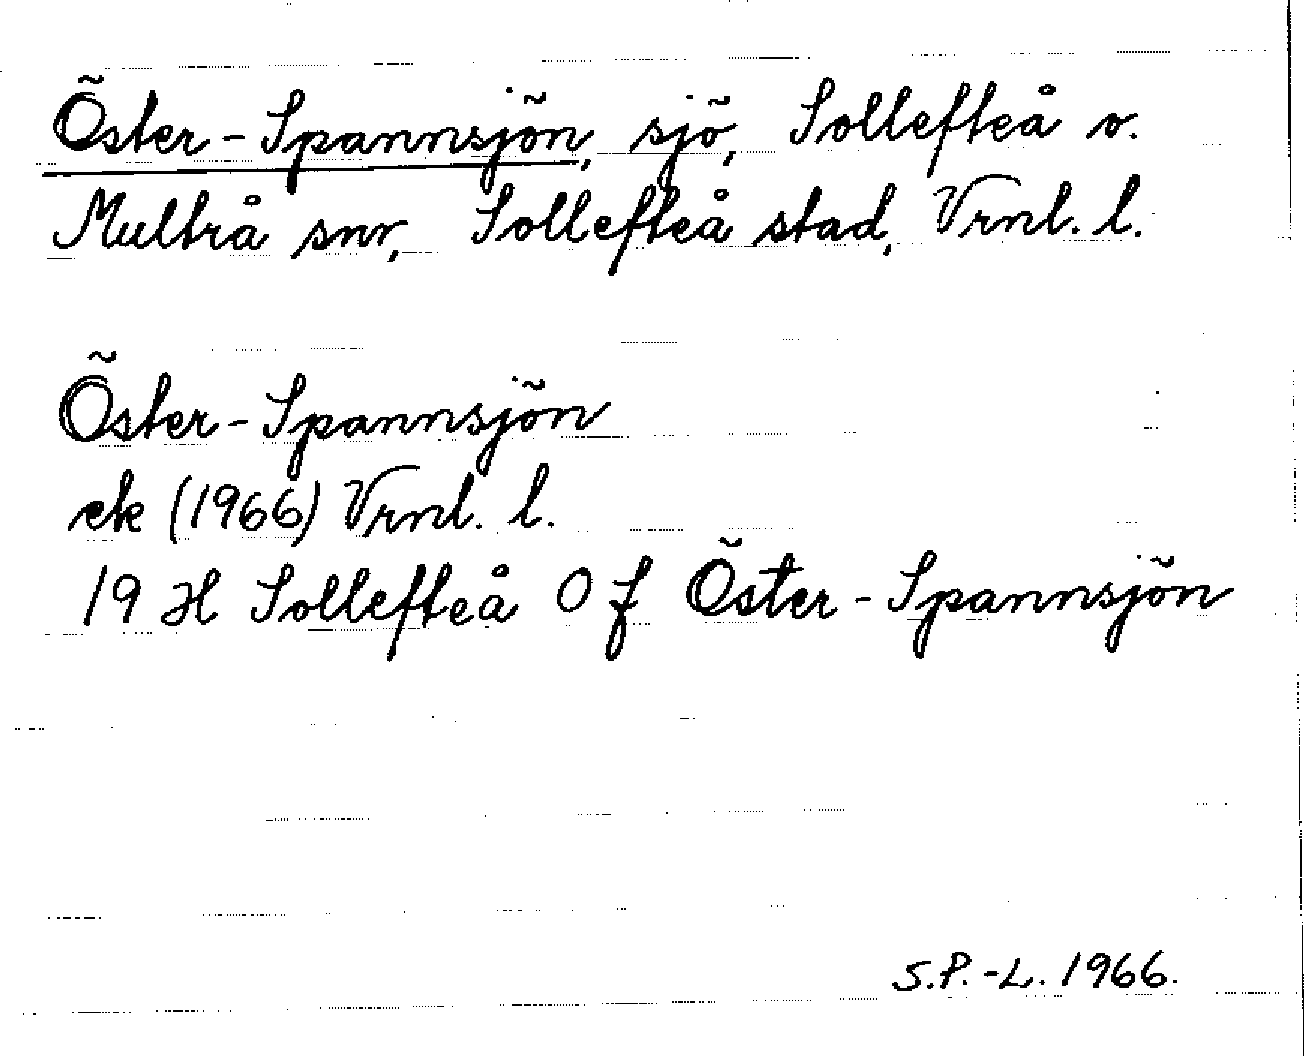 Öster-Spannsjön, sjö, Sollefteå o.
Multrå snr, Sollefteå stad, Vrnl. l.
Öster-Spannsjön
ek (1966) Vrnl. l.
19 H Sollefteå 0 f Öster-Spannsjön
S.P.-L. 1966.